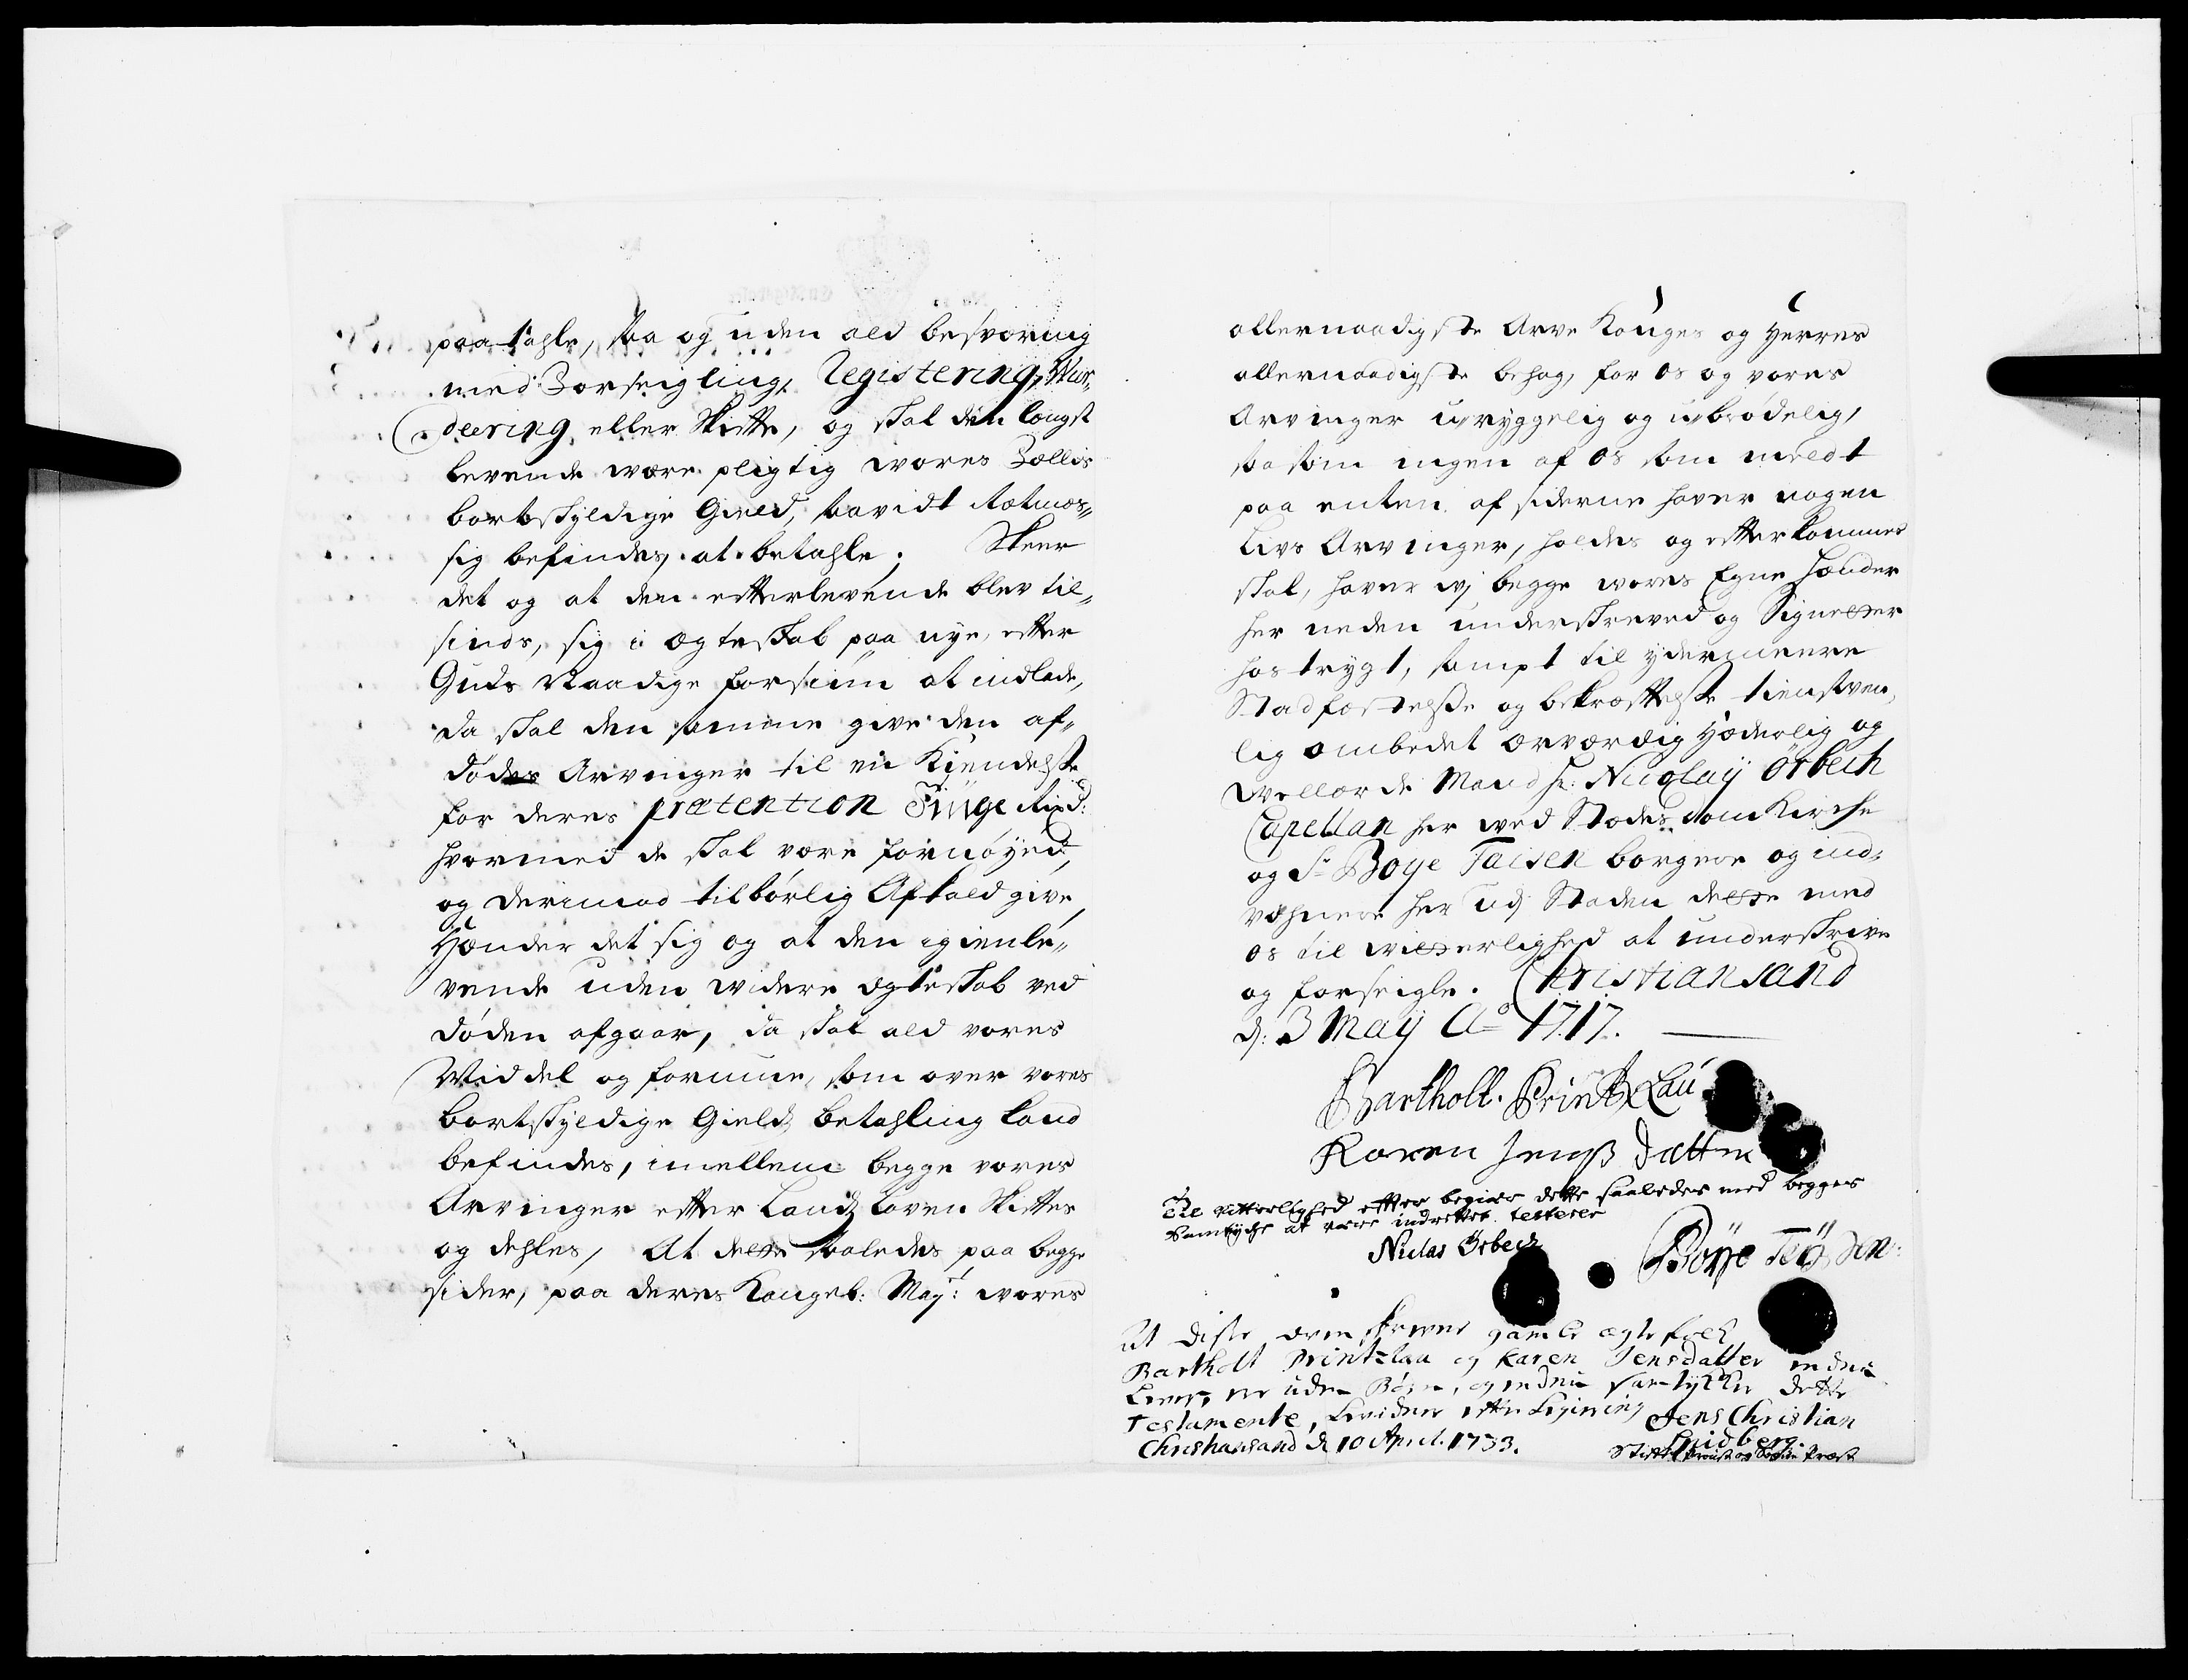 paatahle, saa og uden ald besværing
med Forseigling, Registering, Wur-
deering, eller Skiffte, og skal den længst
levende være pligtig vores Fællis
bortskyldige Gield, saavidt
sig befindes, at betahle. Skeer
det og at den effterlevende blev til-
sinds, sig i Ægteskab paa nye, effter
Guds Naadige forsiun at indlade,
da skal den samme give den af-
døde Arvinger til en Kiendelsse
for deres prætention Tiuge Rixd:
hvormed de skal være fornøyed,
og derimod tilbørlig Afkald give,
Hænder det sig og at den igienle-
vende uden widere Ægteskab ved
døden afgaar, da skal ald vores
Middel og formue, som over vores
bortskyldige Gields betahling kand
befindes, imellem begge vores
Arvinger effter Landz Loven Skifftes
og dehles, At dette saaledes paa begge
sider, paa deres Kongel: Mayt: vores
allernaadigste Arve Konges og Herres
allernaadigste behag, for os og vores
Arvinger uryggelig og ubrødelig,
saasom ingen af os som meldt
paa enten af siderne haver nogen
Livs Arvinger, holdes og effterkommes
skal, haver vj begge vores Egne Hænder
her neden underskreved og Signetter
hostrygt, sampt til ydermeere
Stadfæstelsse og bekræfftelsse tienstven-
lig ombedet ærværdig Hæderlig og
Wellærde Mand Hr: Nicolaÿ Örbech
Capellan her wed Stædes domKirche
og Sr Boye Taisen borgere og ind-
vohnere her udj Staden dette med
os til witterlighed at underskrive
og forseigle. Christiansand
d: 3 Maÿ Ao 1717.
Bartholt. PrintzLau
Karen Jenß Datter
Til vitterlighed effter begiær dette saaledes med begges
Samtyche at være indrettet testerer
Niclas Örbech
Boÿe Teÿsen
At disse ovenskrevne gamle ægtefolk
Bartholt Printzlau og Karen Jensdatter endnu
Lever, er uden Børn, og endnu samtykker dette
Testamente, bevidner efter begiering Jens Christian
Spidberg
Christiansand d 10 April. 1733.
Stiftsprovst og Sogne Præst